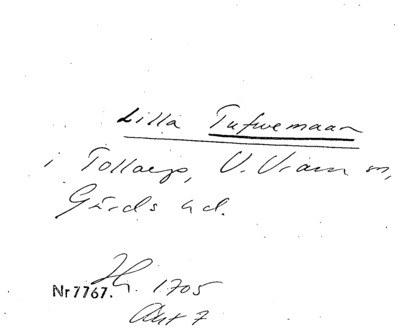 Lilla Tufwemaar
i Tollarp, V. Vram sn,
Gärds hd.
Hh. 1705
Nr 7767.
Akt 7